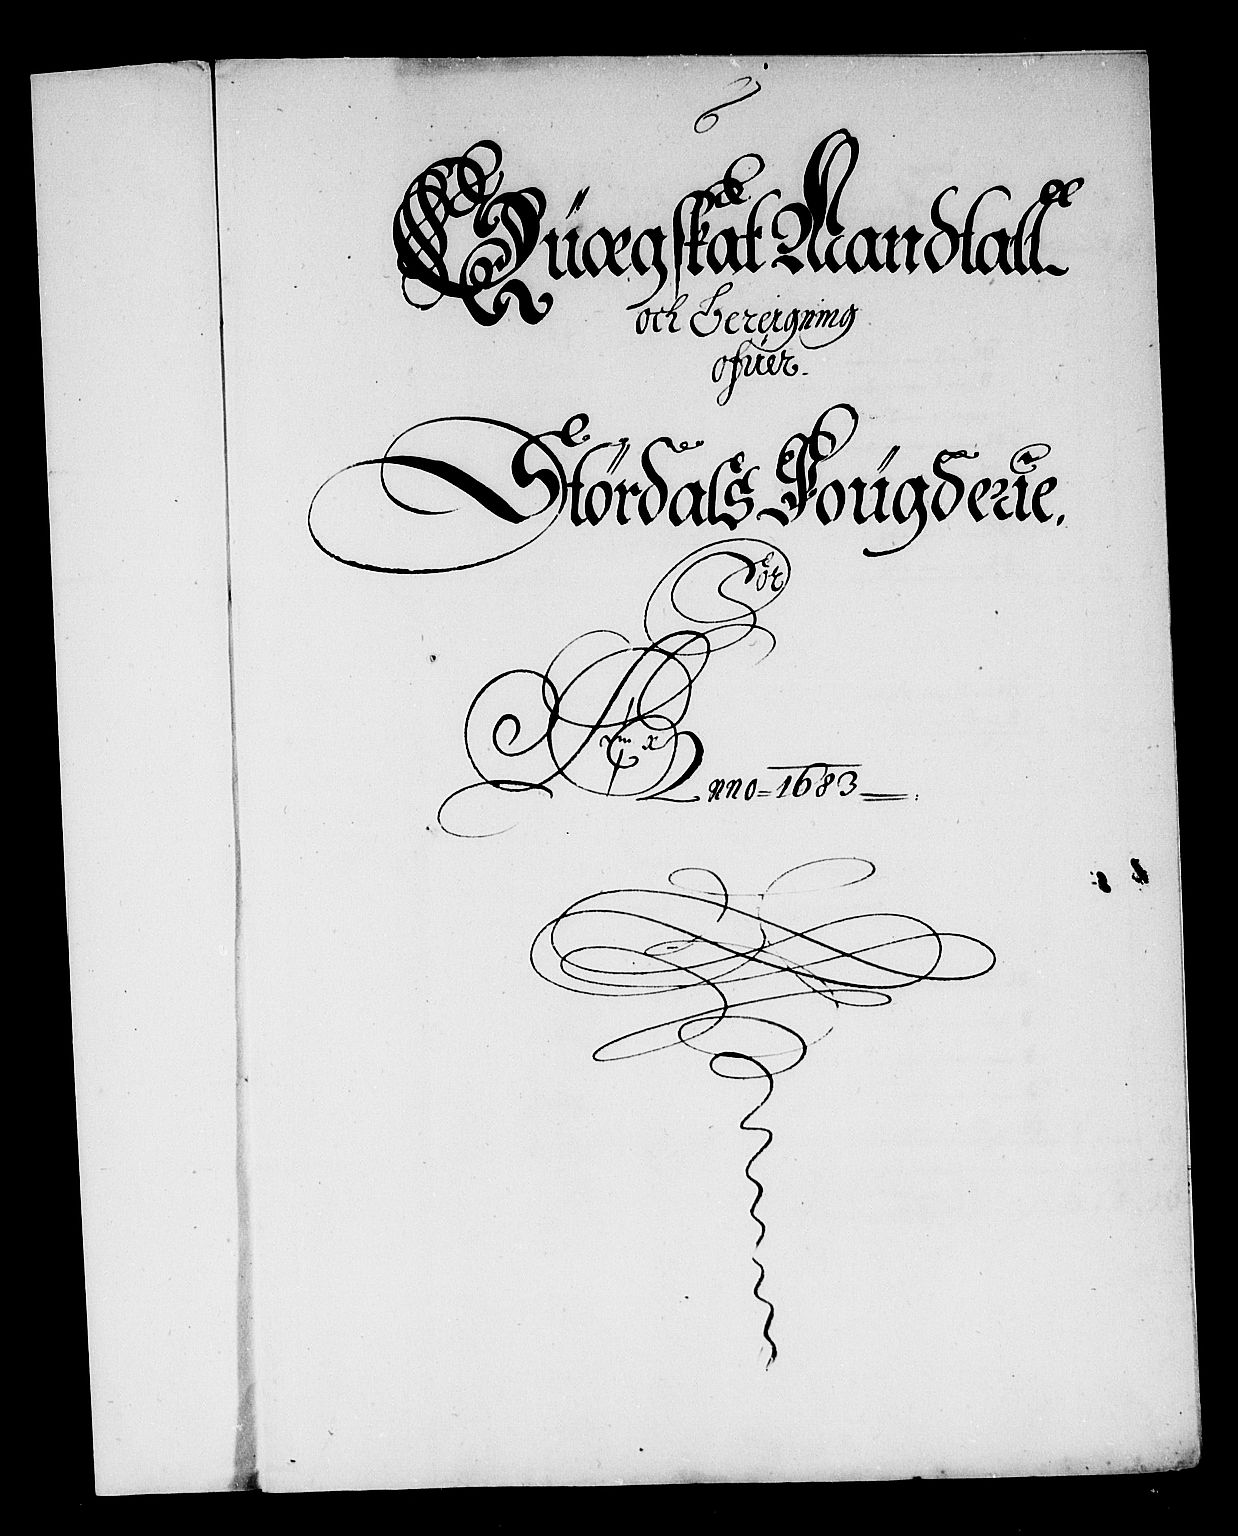 Qüægskat Mandtall
och bereigning
ofüer.
Stördals Fougderie.
för
Anno = 1683